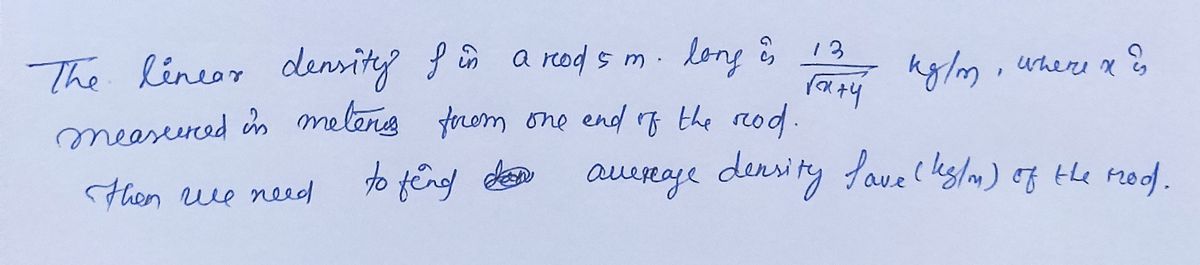 The linear density ρ in a rod 5 m. long is 13/√x+4 kg/m, where x is
measured in meters from one end of the rod.
Then we need to find average density ρave (kg/m) of the rod.